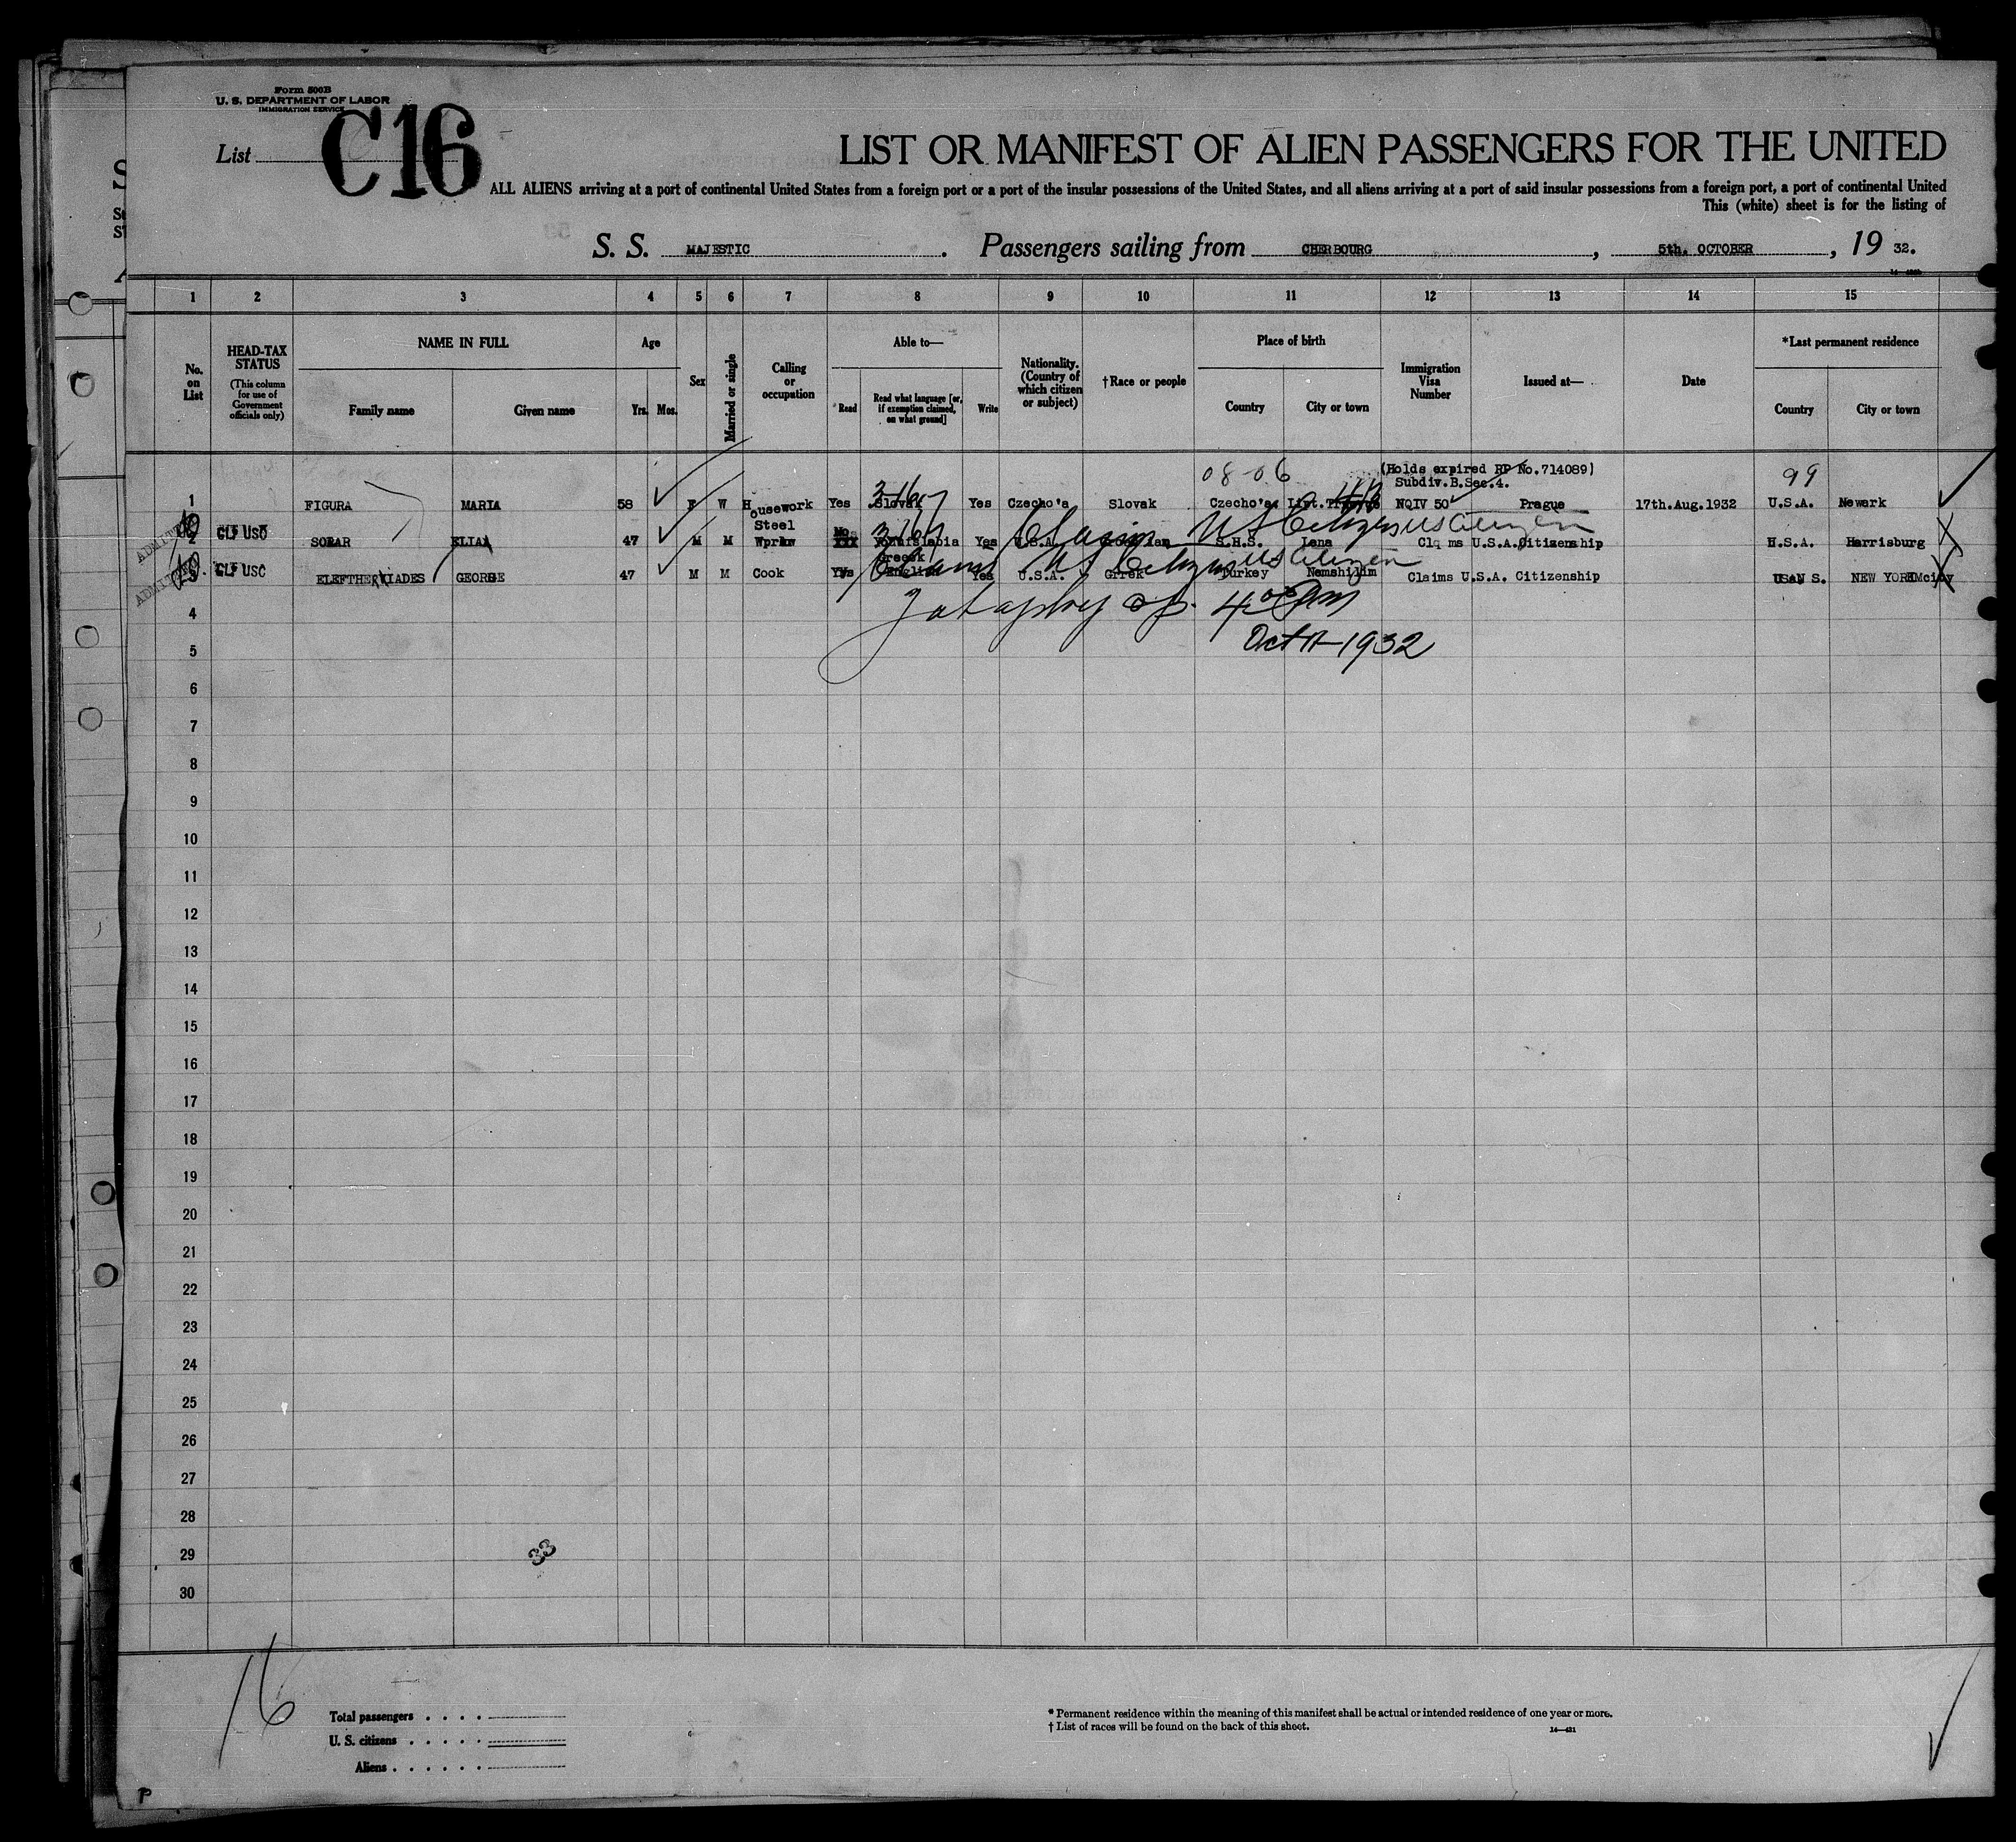 Form 500B
U. S. DEPARTMENT OF LABOR
IMMIGRATION SERVICE
List C16
LIST OR MANIFEST OF ALIEN PASSENGERS FOR THE UNITED
ALL ALIENS arriving at a port of continental United States from a foreign port or a port of the insular possessions of the United States, and all aliens arriving at a port of said insular possessions from a foreign port, a port of continental United
This (white) sheet is for the listing of
S. S. MAJESTIC. Passengers sailing from CHERBOURG, 5th. OCTOBER, 19 32.
1 2 3 4 5 6 7 8 9 10 11 12 13 14 15
No. on List
HEAD-TAX STATUS
(This column for use of Government officials only)
NAME IN FULL
Family name Given name
Age
Yrs. Mos.
Sex
Married or single
Calling or occupation
Able to—
Read Read what language [or, if exemption claimed, on what ground] Write
Nationality. (Country of which citizen or subject)
†Race or people
Place of birth
Country City or town
Immigration Visa Number
Issued at—
Date
*Last permanent residence
Country City or town
08-06 (Holds expired RP No.714089) 99
Subdiv.B.Sec.4.
1 FIGURA MARIA 58 F W Housework Yes Slovak Yes Czecho'a Slovak Czecho'a NQIV 50 Prague 17th.Aug.1932 U.S.A. Newark
ADMITTED 2 USC 47 M M Steel No Yes U.S.A. S.H.S. U.S.A. Citizenship Harrisburg
Claims US Citizen US Citizen
ADMITTED 3 USC ELEFTHERIADES GEORGE 47 M M Cook Yes Greek English Yes U.S.A. Greek Turkey Nemshilim Claims U.S.A. Citizenship NEW YORK city
Claims US Citizen US Citizen
4 4 00 am
5 Oct 11-1932
6
7
8
9
10
11
12
13
14
15
16
17
18
19
20
21
22
23
24
25
26
27
28
29 33
30
16
Total passengers
U. S. citizens
Aliens
* Permanent residence within the meaning of this manifest shall be actual or intended residence of one year or more.
† List of races will be found on the back of this sheet. 14—421
P